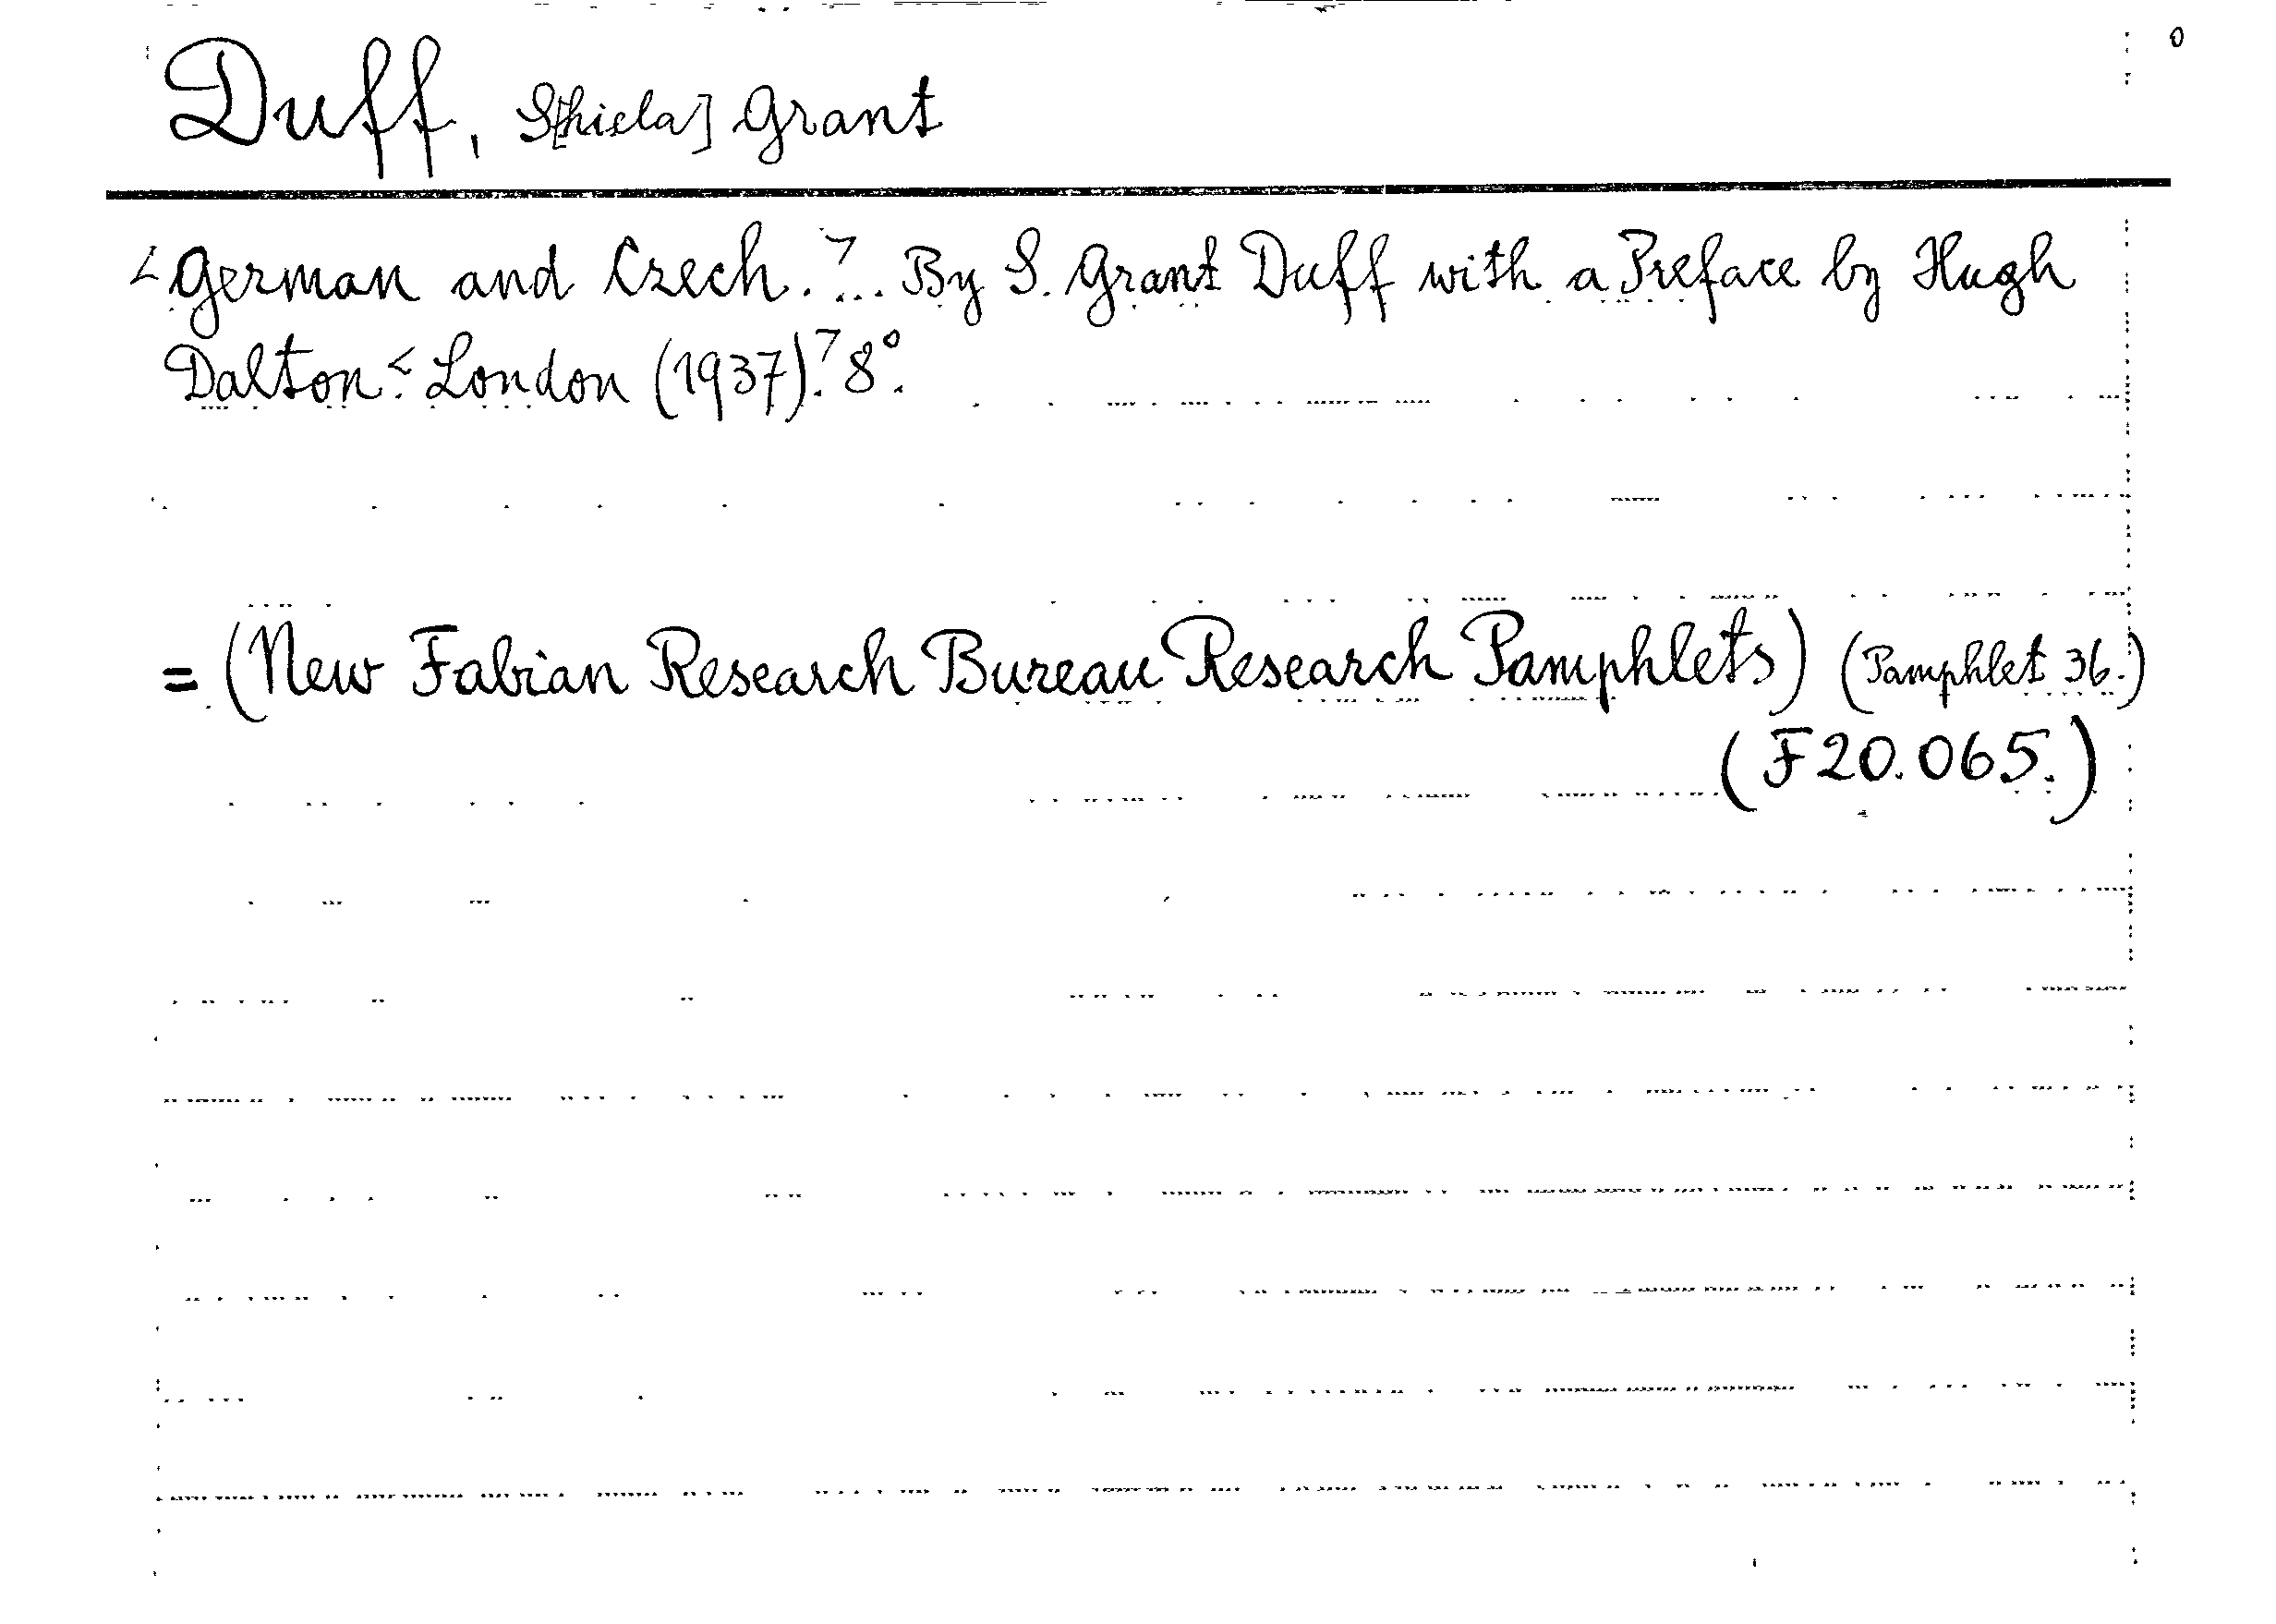 0
Duff, S[hiela] Grant
<German and Czech.> ... By S. Grant Duff with a Preface by Hugh
Dalton.< London (1937).> 8°.
= (New Fabian Research Bureau Research Pamphlets) (Pamphlet 36.)
(F20.065.)